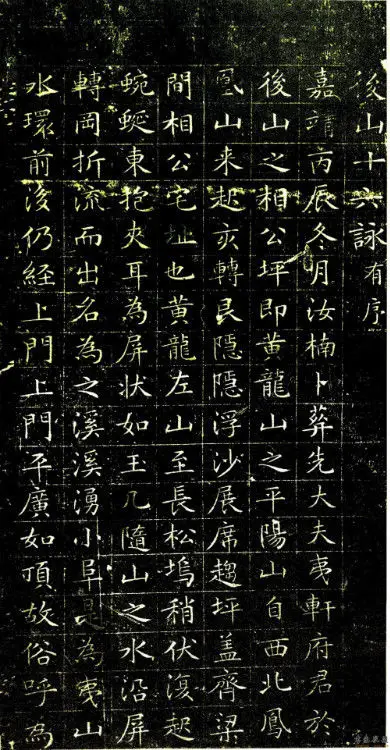 後山十六詠有序
嘉靖丙辰冬月汝楠卜葬先大夫夷軒府君於
後山之相公坪即黄龍山之平陽山自西北鳳
凰山来起亥轉艮隱隱浮沙展席趨坪盖齊梁
間相公宅址也黄龍左山至長松塢稍伏復起
蜿蜒東抱夾耳為屏状如玉几隨山之水沿屏
轉岡折流而出名為之溪溪湧小阜是為夷山
水環前後仍經上門上門平廣如頂故俗呼為